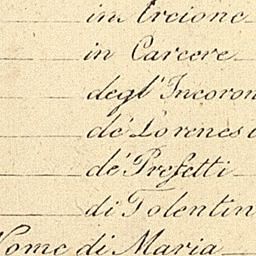 in Arcione
in Carcere
degl' Incoron
de' Lorenesi
de' Prefetti
di Tolentin
Nome di Maria